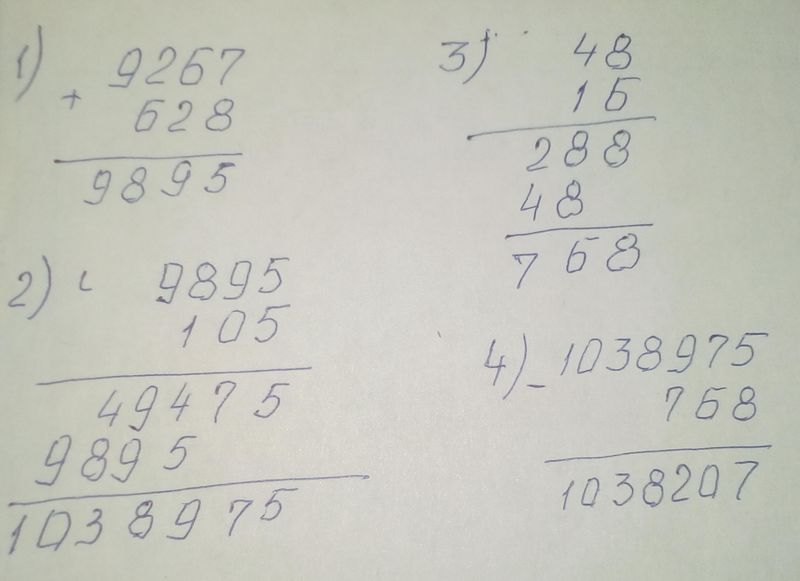 1) 9267
+ 628
9895
2) 9895
105
49475
9895
1038975
3) 48
16
288
48
768
4) - 1038975
768
1038207